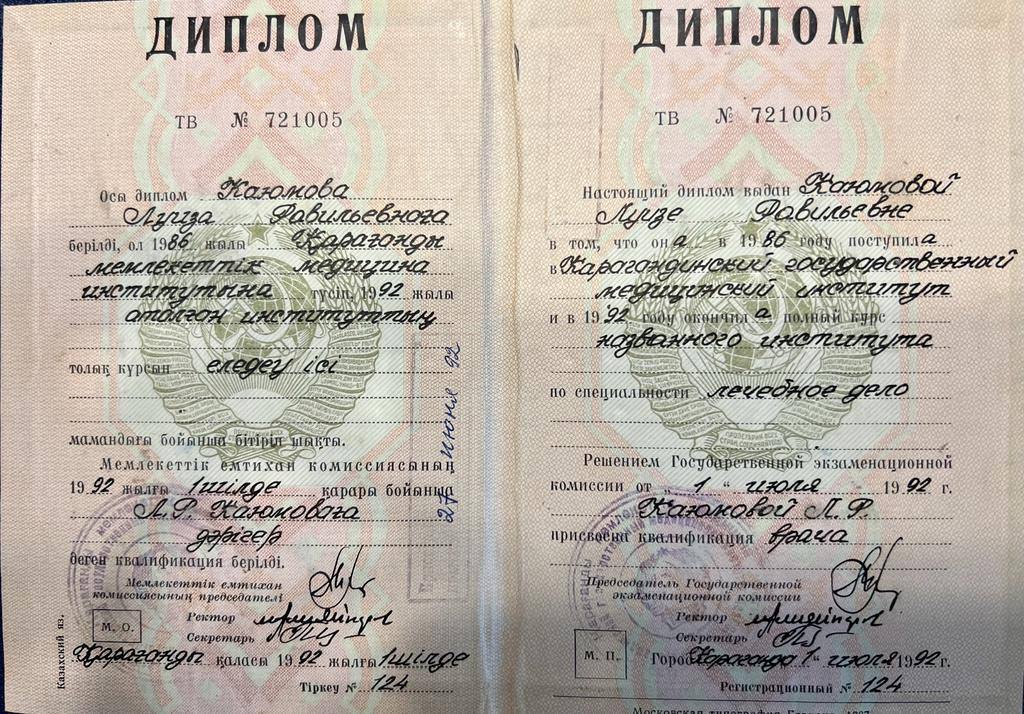 ДИПЛОМ
ТВ № 721005
Осы диплом Каюмова
Луиза Равильевнаға
берілді, ол 1986 жылы Қарағанды
мемлекеттік медицина
институтына түсіп, 1992 жылы
аталған институттың
толық курсын емдеу ісі
мамандығы бойынша бітіріп шықты.
Мемлекеттік емтихан комиссиясының
1992 жылғы 1 шілде қарары бойынша
Л.Р. Каюмоваға
дәрігер
деген квалификация берілді.
Мемлекеттік емтихан
комиссиясының председателі
Ректор
Секретарь
М. О.
Қарағанды қаласы 1992 жылғы 1 шілде
Тіркеу № 124
Казахский яз.
27 июня 92
ДИПЛОМ
ТВ № 721005
Настоящий диплом выдан Каюмовой
Луизе Равильевне
в том, что она в 1986 году поступила
в Карагандинский государственный
медицинский институт
и в 1992 году окончила полный курс
названного института
по специальности лечебное дело
Решением Государственной экзаменационной
комиссии от „ 1 “ июля 1992 г.
Каюмовой Л.Р.
присвоена квалификация врача
Председатель Государственной
экзаменационной комиссии
Ректор
Секретарь
М. П.
Город Караганда 1“ июля 1992 г.
Регистрационный № 124
Московская типография Гознака. 1987.